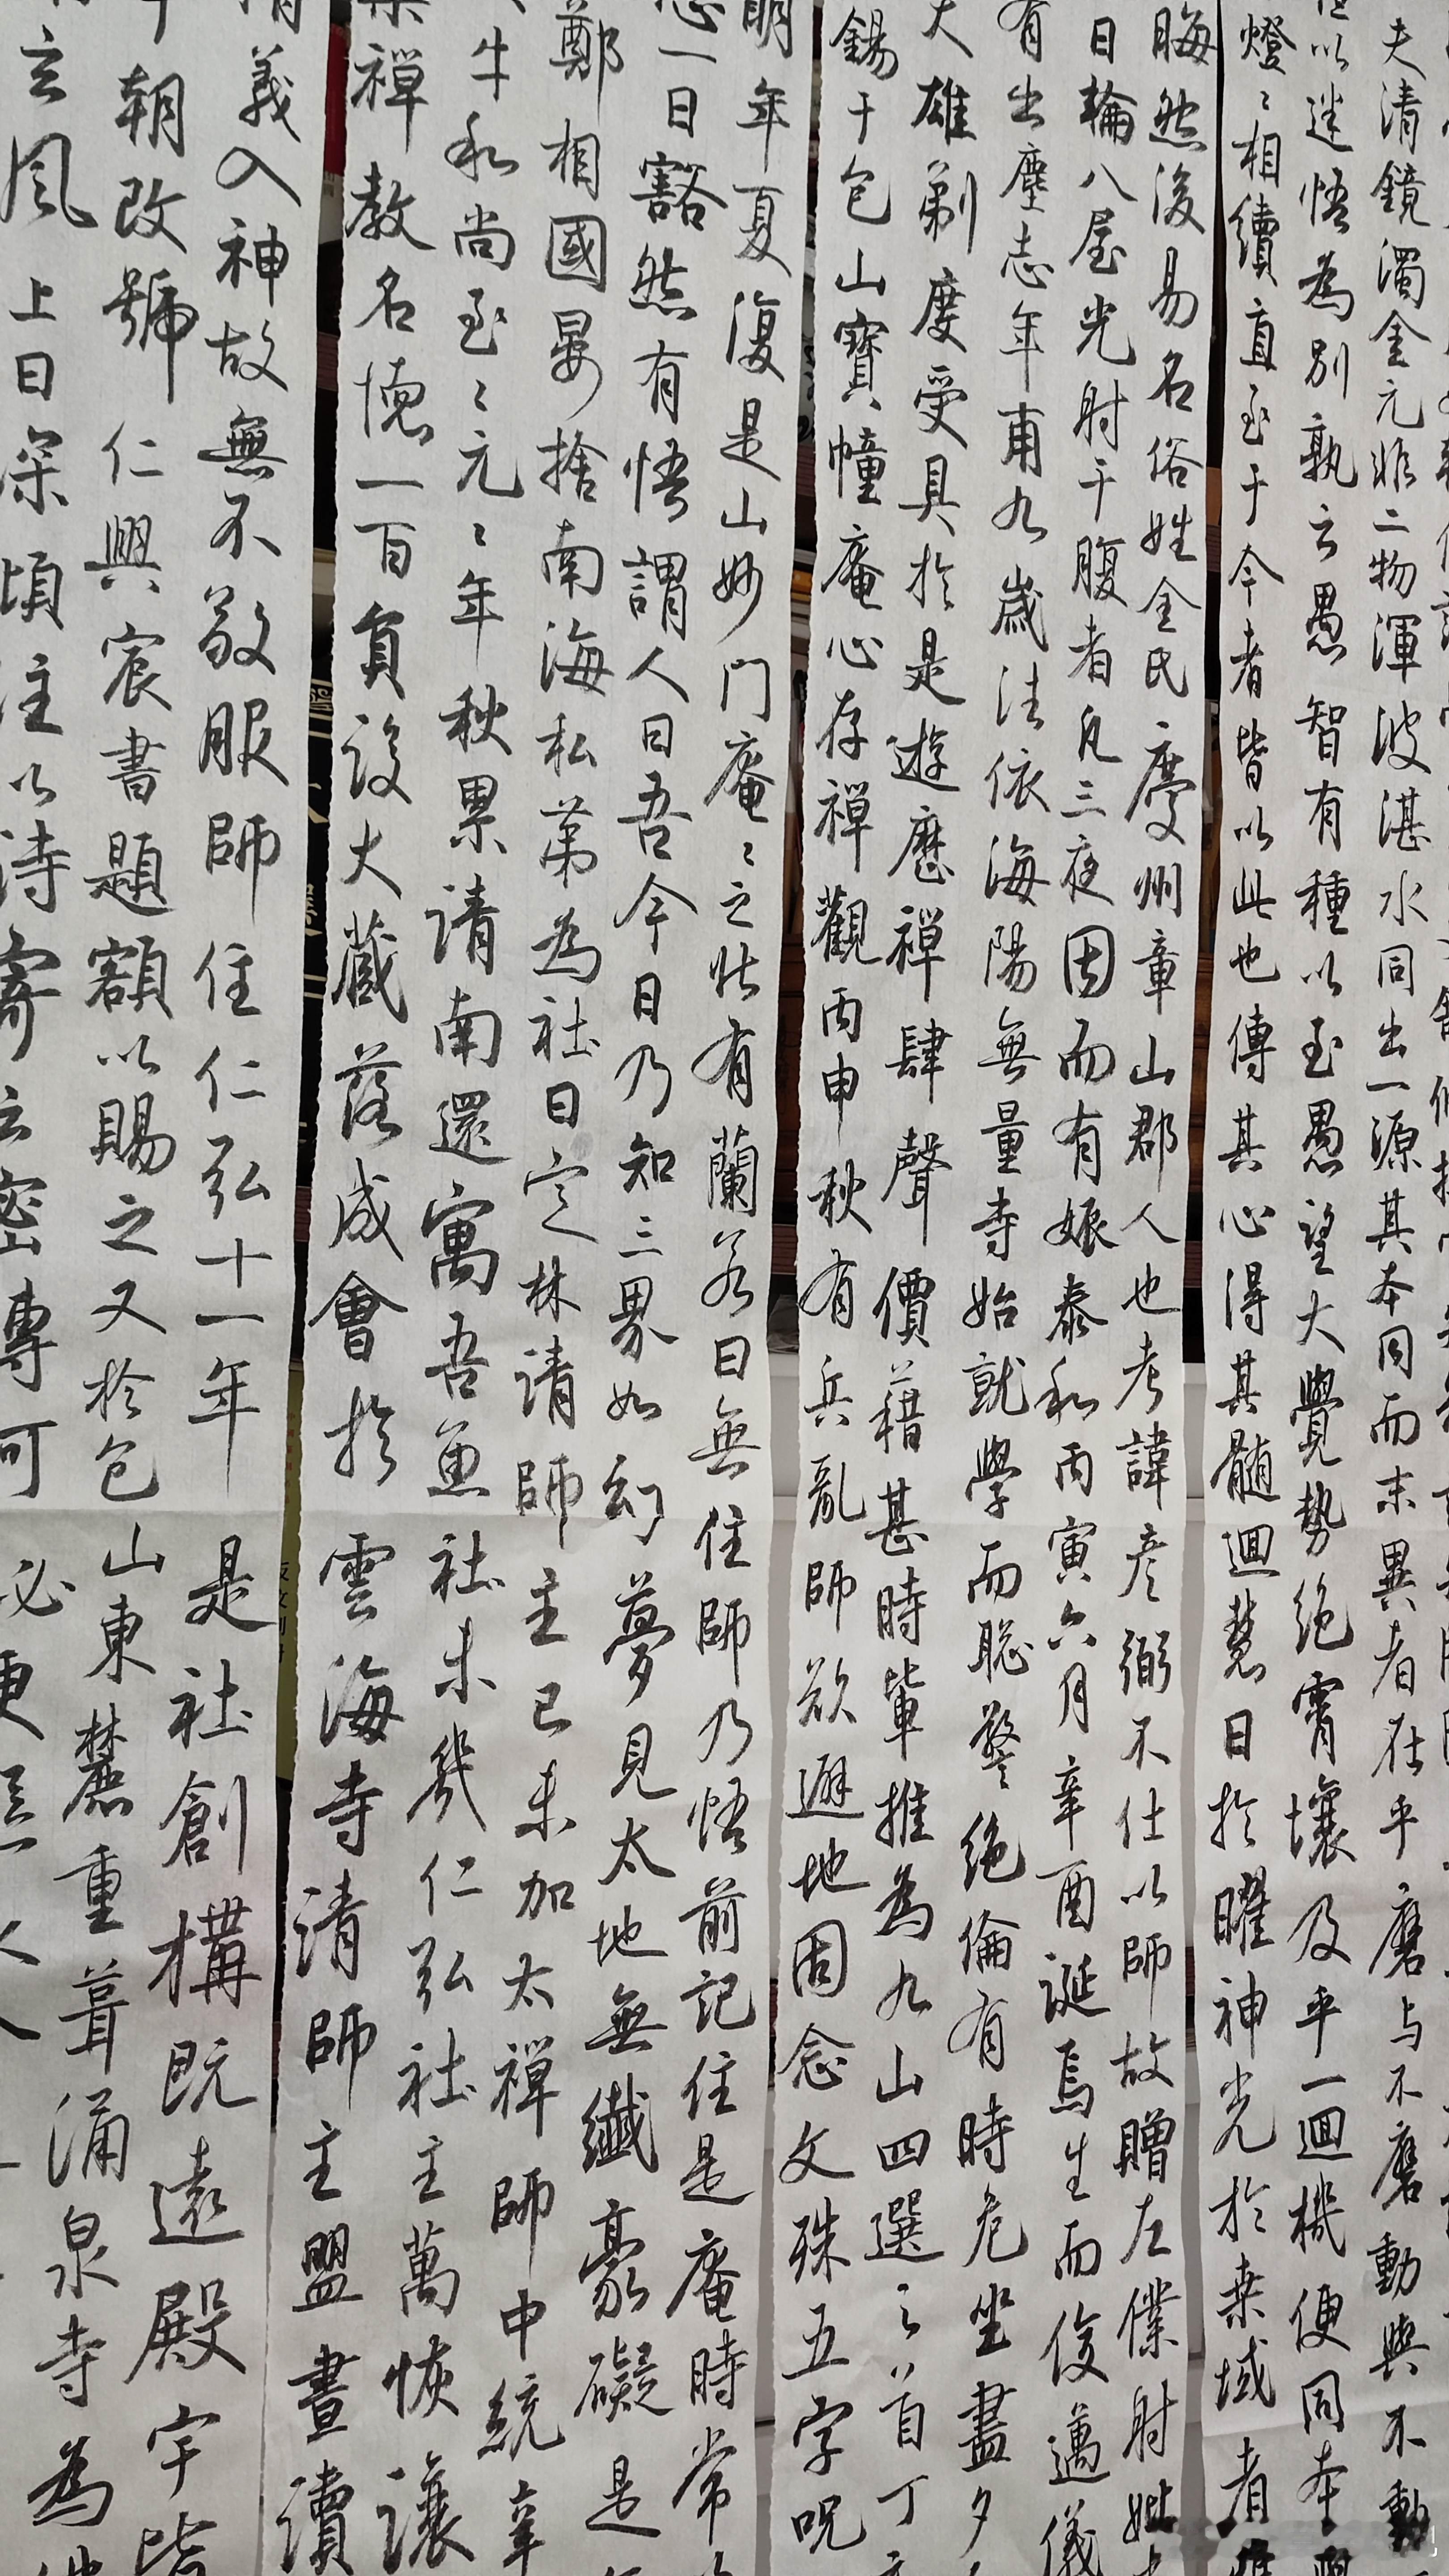 夫清鏡濁金元非二物渾波湛水同出一源其本同而末異者在乎磨与不磨動與不動
以迷悟為別孰云愚智有種以至愚望大覺勢絶霄壤及乎一迴機便同本
燈〻相續直至于今者皆以此也傳其心得其髓迴慧日於
曜神光於桒域者
晦然後易名俗姓金氏慶州章山郡人也考諱彦弼不仕以師故贈左僕射妣
日輪入屋光射于腹者凡三夜因而有娠泰和丙寅六月辛酉誕焉生而俊邁儀
有出塵志年甫九歲法依海陽無量寺始就學而聡警絶倫有時危坐盡夕
大雄剃度受具於是遊歷禪肆聲價藉甚時輩推為九山四選之首丁
錫于包山寶幢庵心存禪觀丙申秋有兵亂師欲避地因念文殊五字呪
明年夏復是山妙門庵〻之北有蘭若曰無住師乃悟前記住是庵時常
一日豁然有悟謂人曰吾今日乃知三界如幻夢見太地無纎豪礙是
鄭相國晏捨南海私第為社曰定林請師主已未加太禪師中統辛
牛和尚至〻元〻年秋累請南還寓吾魚社未幾仁弘社主萬恢讓
禪教名德一百負設大藏落成會於雲海寺請師主盟晝讀
義入神故無不敬服師住仁弘十一年是社創構既遠殿宇皆
朝改號仁興宸書題額以賜之又於包山東麓重葺涌泉寺為
玄風上日深頃注以詩寄云密專可必更